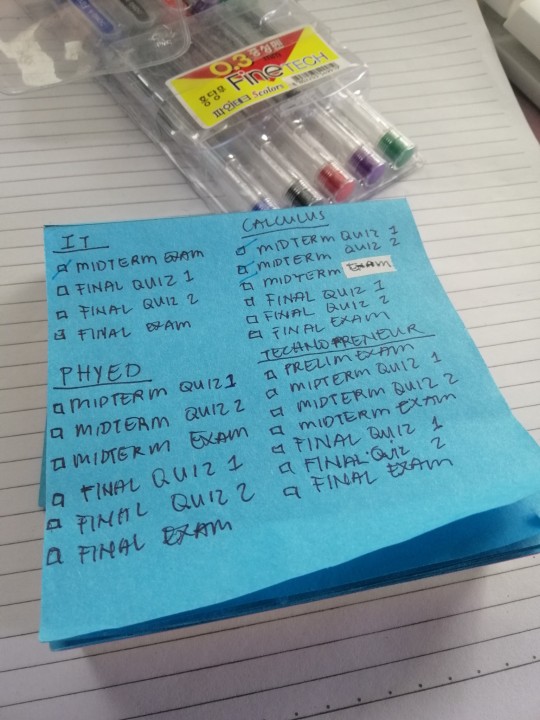 0.3 중성펜
Fine TECH
파인테크 5colors
IT
MIDTERM EXAM
FINAL QUIZ 1
FINAL QUIZ 2
FINAL EXAM
PHYED
MIDTERM QUIZ 1
MIDTERM QUIZ 2
MIDTERM EXAM
FINAL QUIZ 1
FINAL QUIZ 2
FINAL EXAM
CALCULUS
MIDTERM QUIZ 1
MIDTERM QUIZ 2
MIDTERM EXAM
FINAL QUIZ 1
FINAL QUIZ 2
FINAL EXAM
TECHNOPRENEUR
PRELIM EXAM
MIDTERM QUIZ 1
MIDTERM QUIZ 2
MIDTERM EXAM
FINAL QUIZ 1
FINAL QUIZ 2
FINAL EXAM